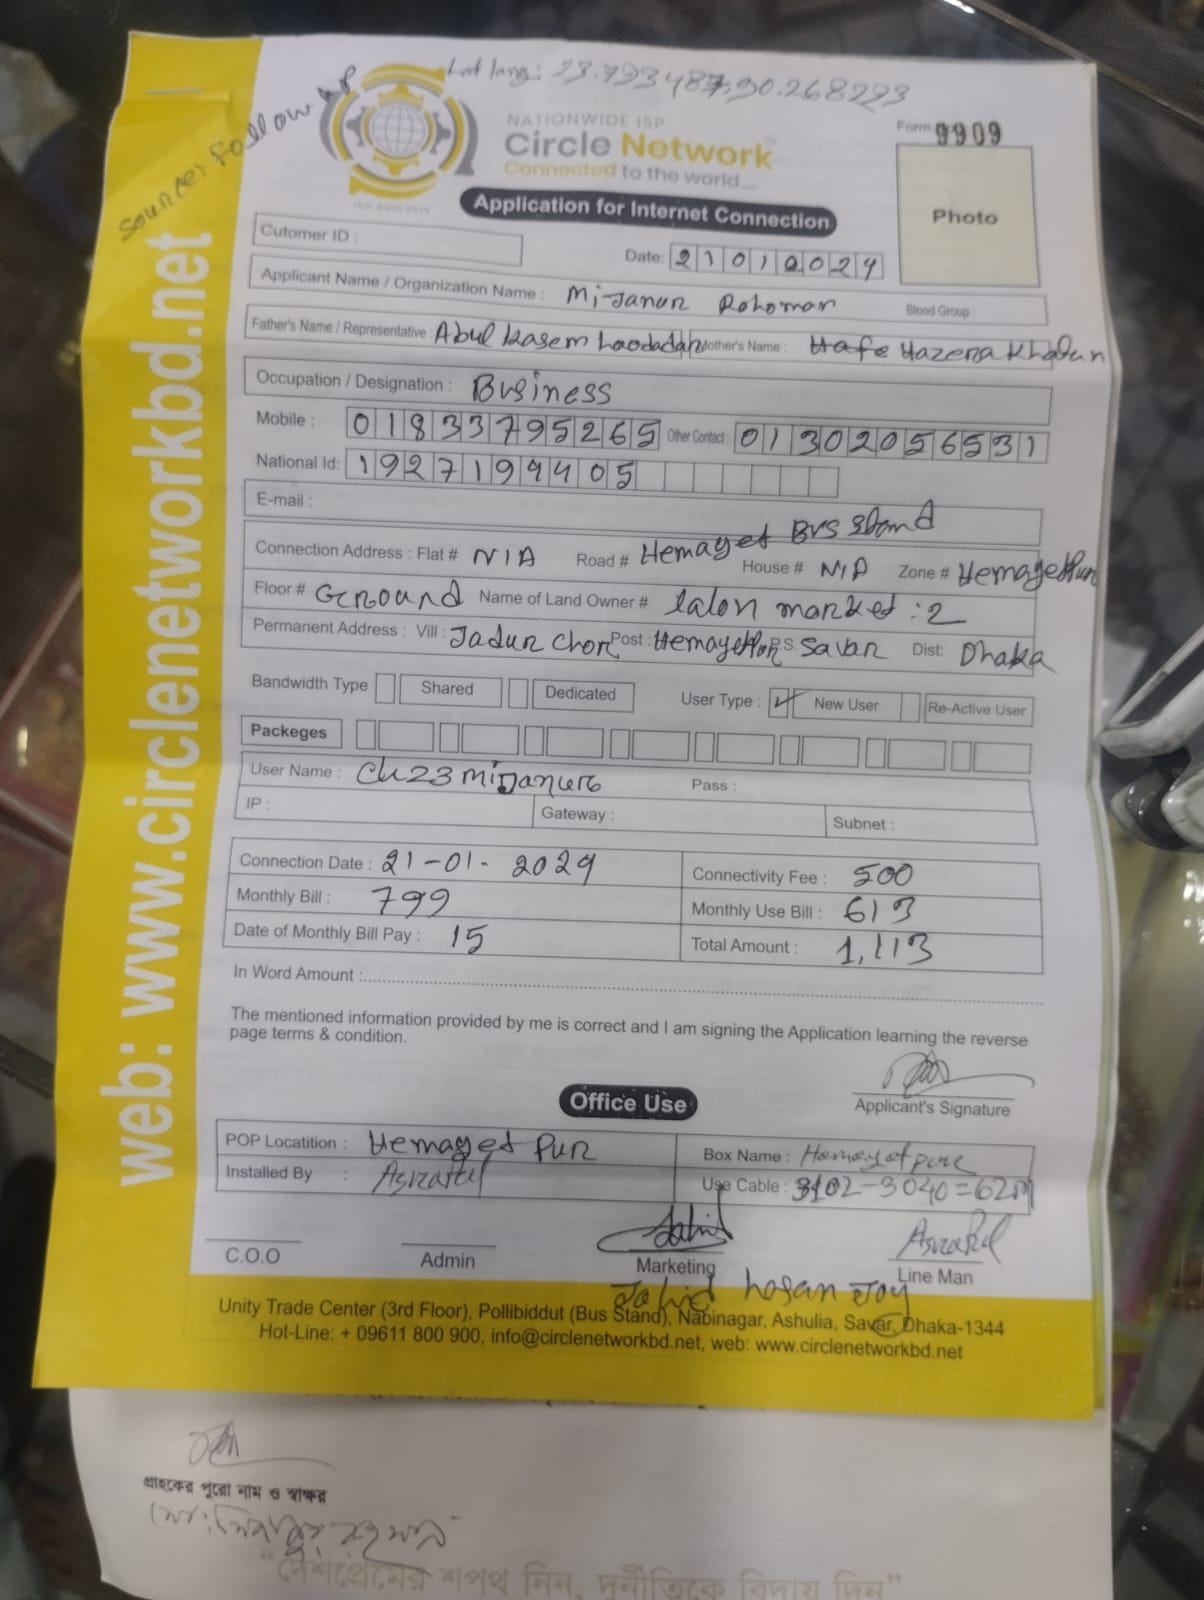 Lat lang: 23.793487,90.268223
Source: Follow up
NATIONWIDE ISP
Circle Network
Connected to the world...
Form 9909
Photo
Application for Internet Connection
Cutomer ID :
Date: 21012024
Applicant Name / Organization Name : Mijanur Rohoman Blood Group :
Father's Name / Representative : Abul Kasem Mother's Name : Hazera Khatun
Occupation / Designation : Business
Mobile : 01833795265 Other Contact : 01302056531
National Id: 1927199405
E-mail :
Connection Address : Flat # N/A Road # Hemayet Bus Stand House # N/A Zone # HemayetPur
Floor # Ground Name of Land Owner # lalon market : 2
Permanent Address : Vill : Jadur Chor Post : HemayetPur P.S. Savar Dist: Dhaka
Bandwidth Type Shared Dedicated User Type : ✓ New User Re-Active User
Packeges
User Name : Pass :
IP : Gateway : Subnet :
Connection Date : 21-01-2024 Connectivity Fee : 500
Monthly Bill : 799 Monthly Use Bill : 613
Date of Monthly Bill Pay : 15 Total Amount : 1,113
In Word Amount :
The mentioned information provided by me is correct and I am signing the Application learning the reverse
page terms & condition.
Applicant's Signature
Office Use
POP Locatition : Hemayet Pur Box Name : Hemayetpur
Installed By : Use Cable : 3102-3040=62m
C.O.O Admin Marketing Line Man
Jahid hosan Joy
Unity Trade Center (3rd Floor), Pollibiddut (Bus Stand), Nabinagar, Ashulia, Savar, Dhaka-1344
Hot-Line: + 09611 800 900, info@circlenetworkbd.net, web: www.circlenetworkbd.net
web: www.circlenetworkbd.net
গ্রাহকের পুরো নাম ও স্বাক্ষর
মো: মিজানুর রহমান
“দেশপ্রেমের শপথ নিন, দুর্নীতিকে বিদায় দিন”